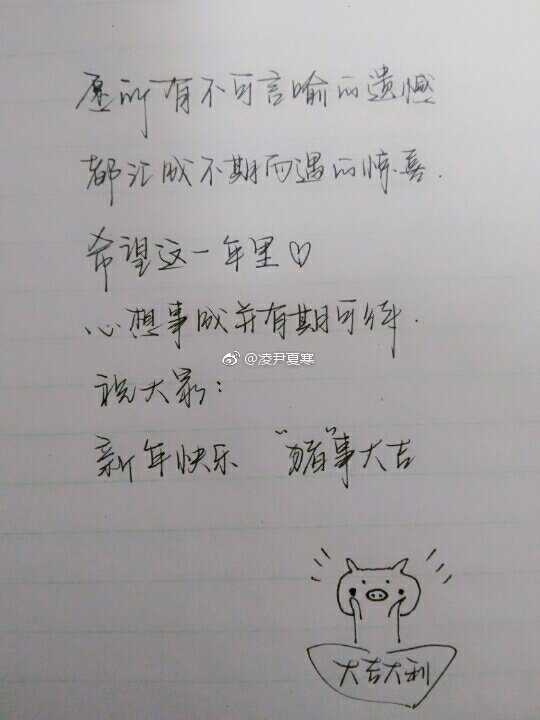 愿所有不可言喻的遗憾
都汇成不期而遇的惊喜.
希望这一年里♡
心想事成并有期可待.
@凌尹夏寒
祝大家:
新年快乐 "猪"事大吉
大吉大利